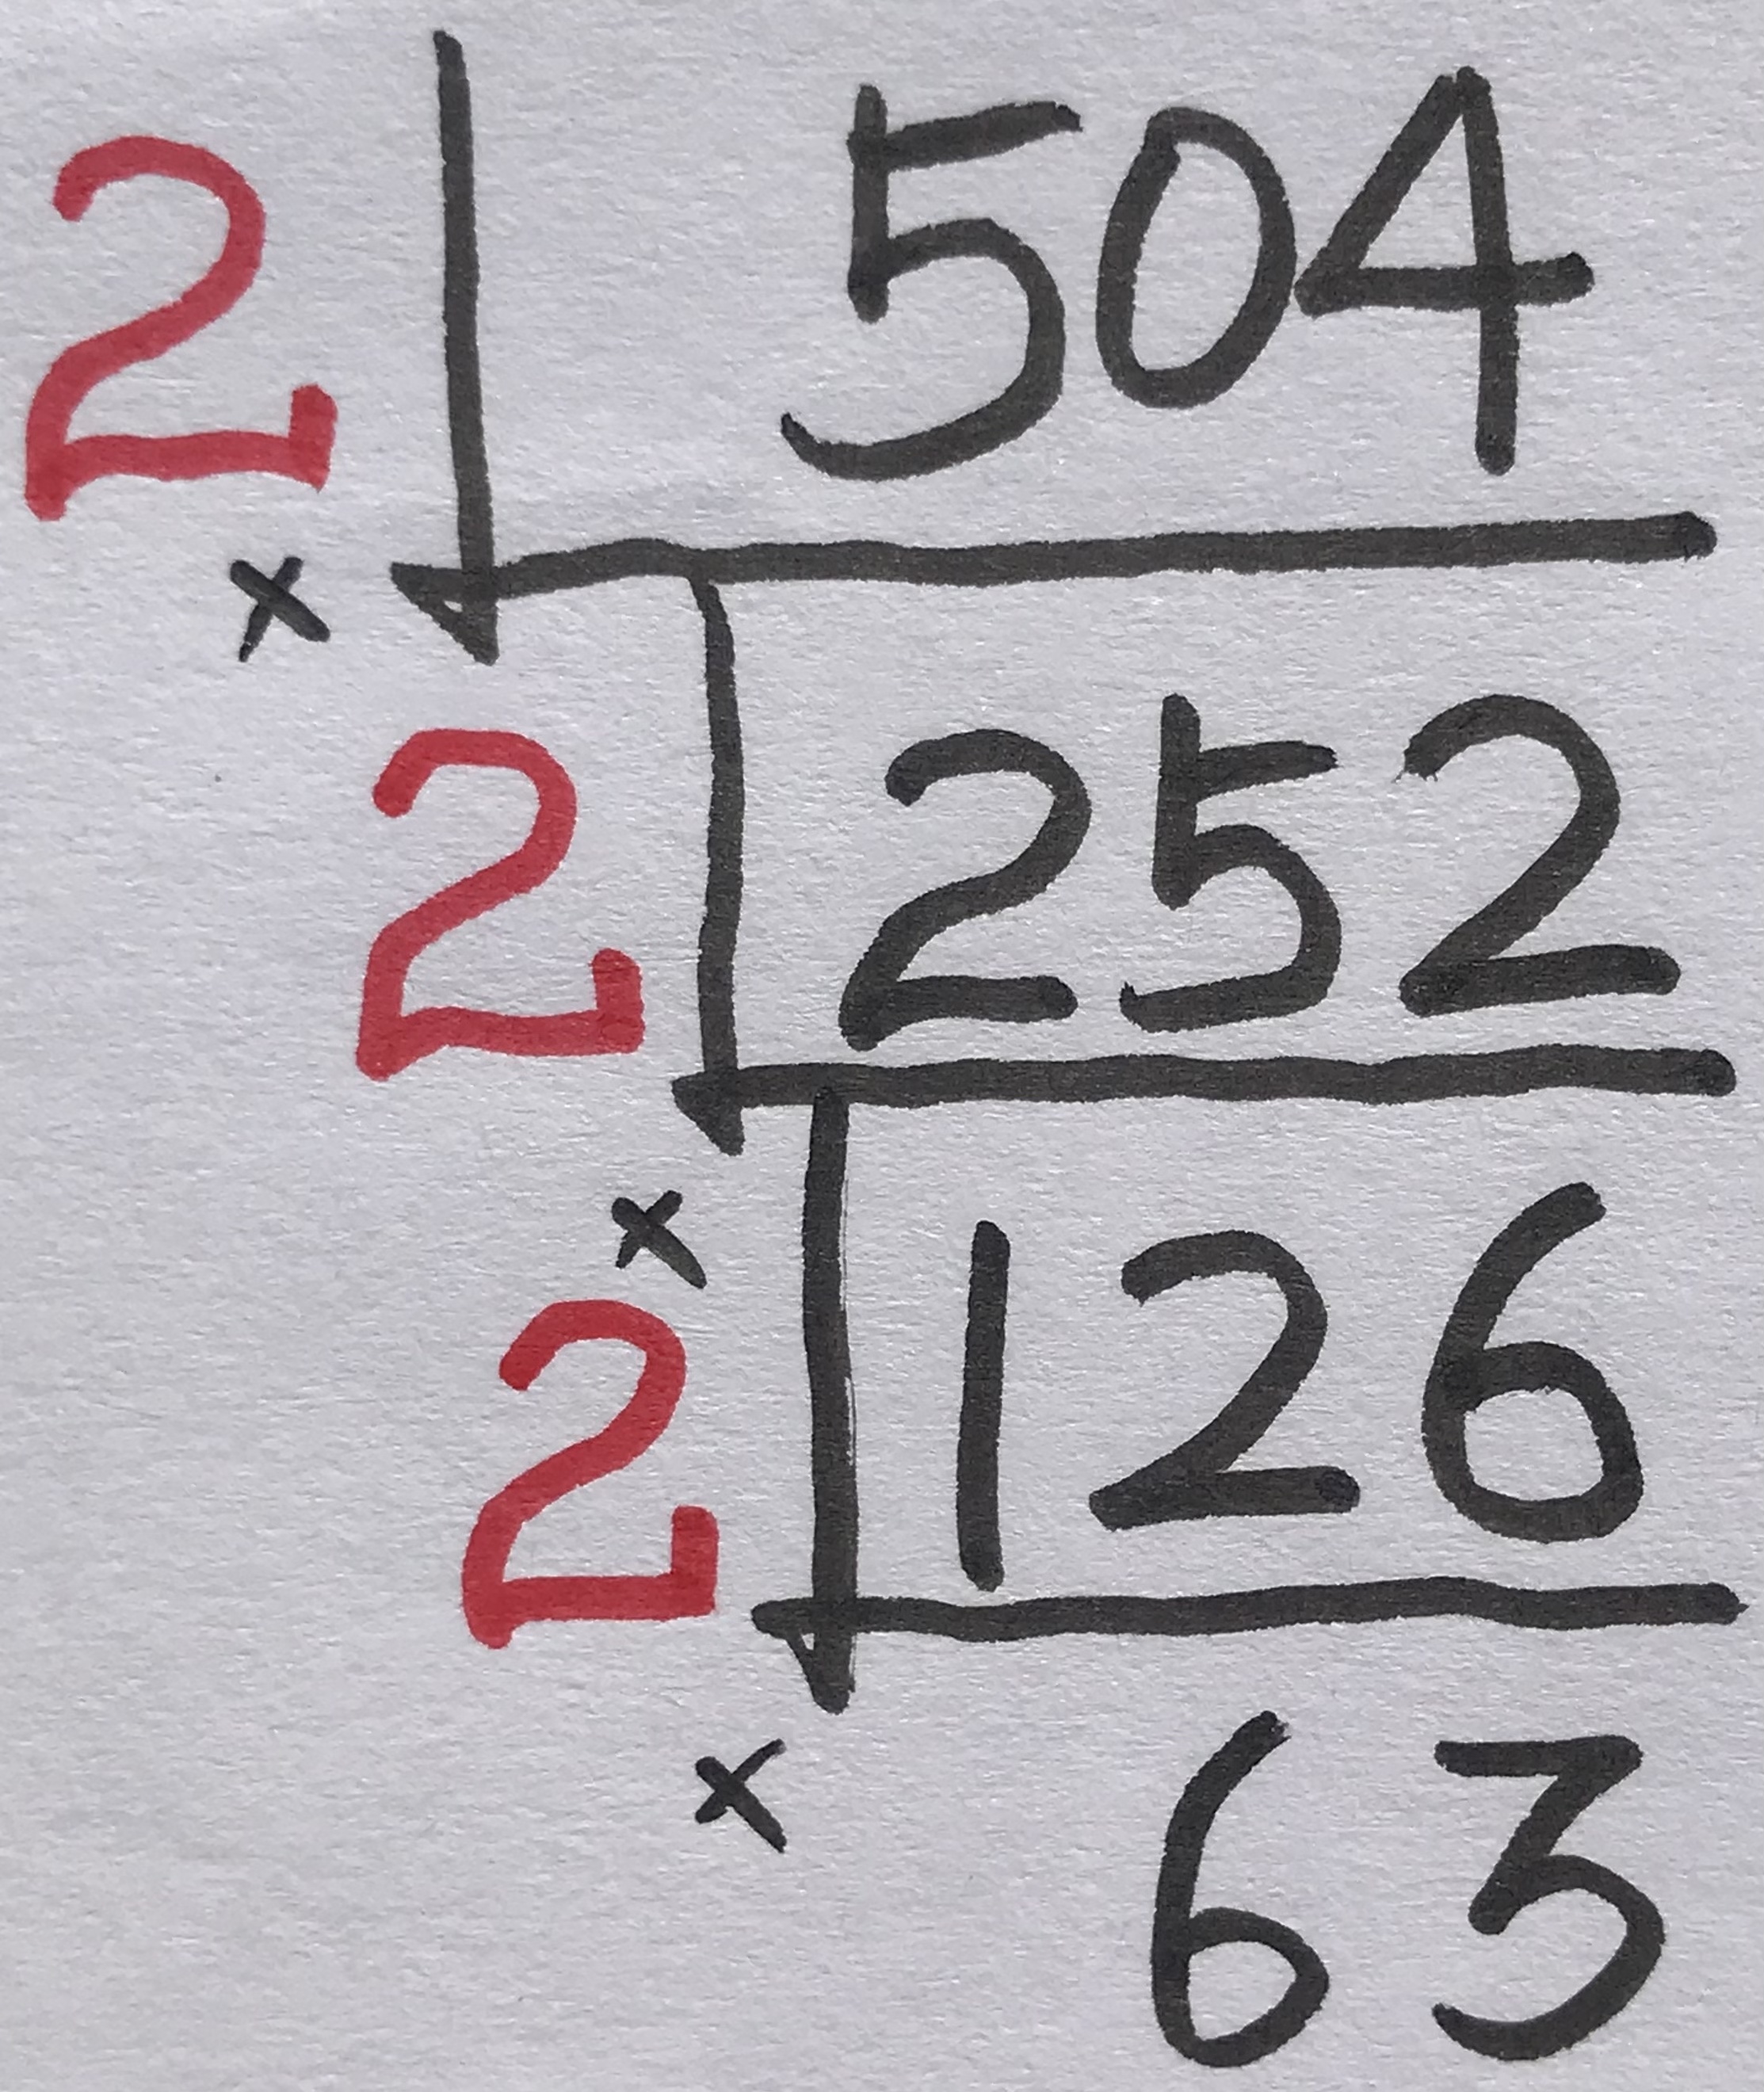 2 504
×
2 252
×
2 126
×
63